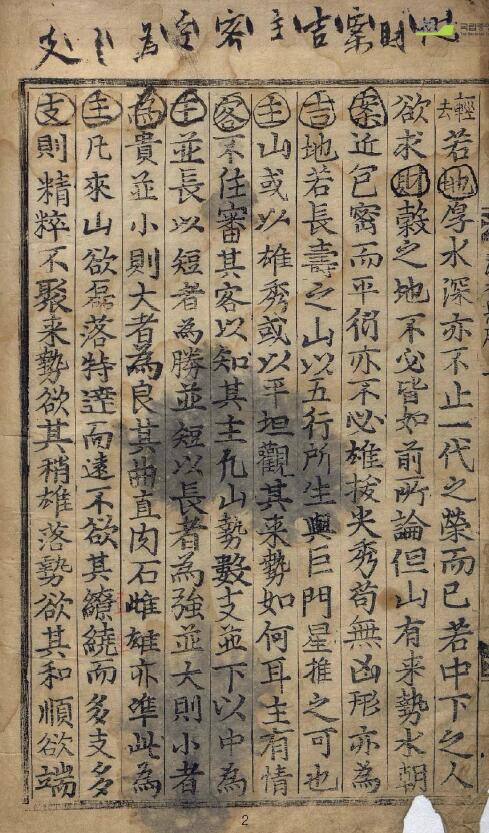 地財案吉主客主為主支
국립중
輕去若地厚水深亦不止一代之榮而已若中下之人
欲求財穀之地不必皆如前所論但山有来勢水朝
案近包密而平衍亦不必雄拔尖秀苟無凶形亦為
吉地若長壽之山以五行所生與巨門星推之可也
主山或以雄秀或以平坦觀其来勢如何耳主有情
客不住審其客以知其主凡山勢數支並下以中為
主並長以短者為勝並短以長者為強並大則小者
為貴並小則大者為良其曲直肉石雌雄亦準此為
主凡來山欲磊落特達而遠不欲其繚繞而多支多
支則精粹不聚来勢欲其稍雄落勢欲其和順欲端
2